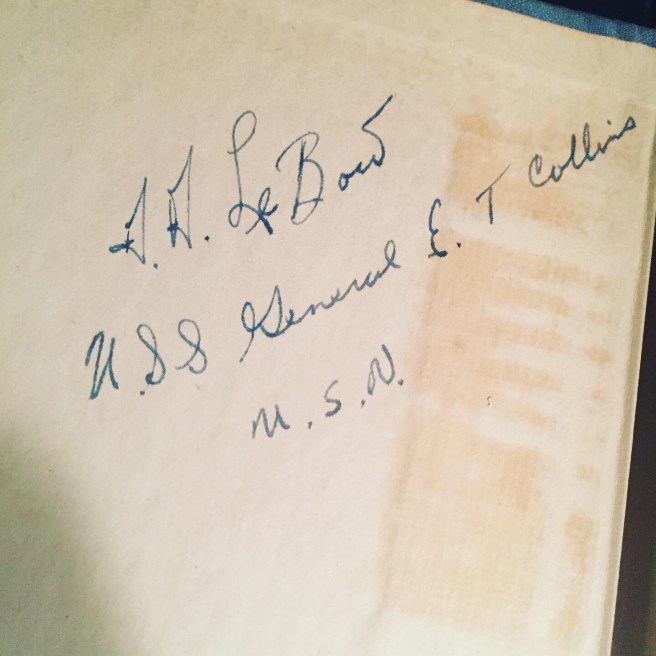 H. H. LeBow
USS General E. T Collins
U.S.N.